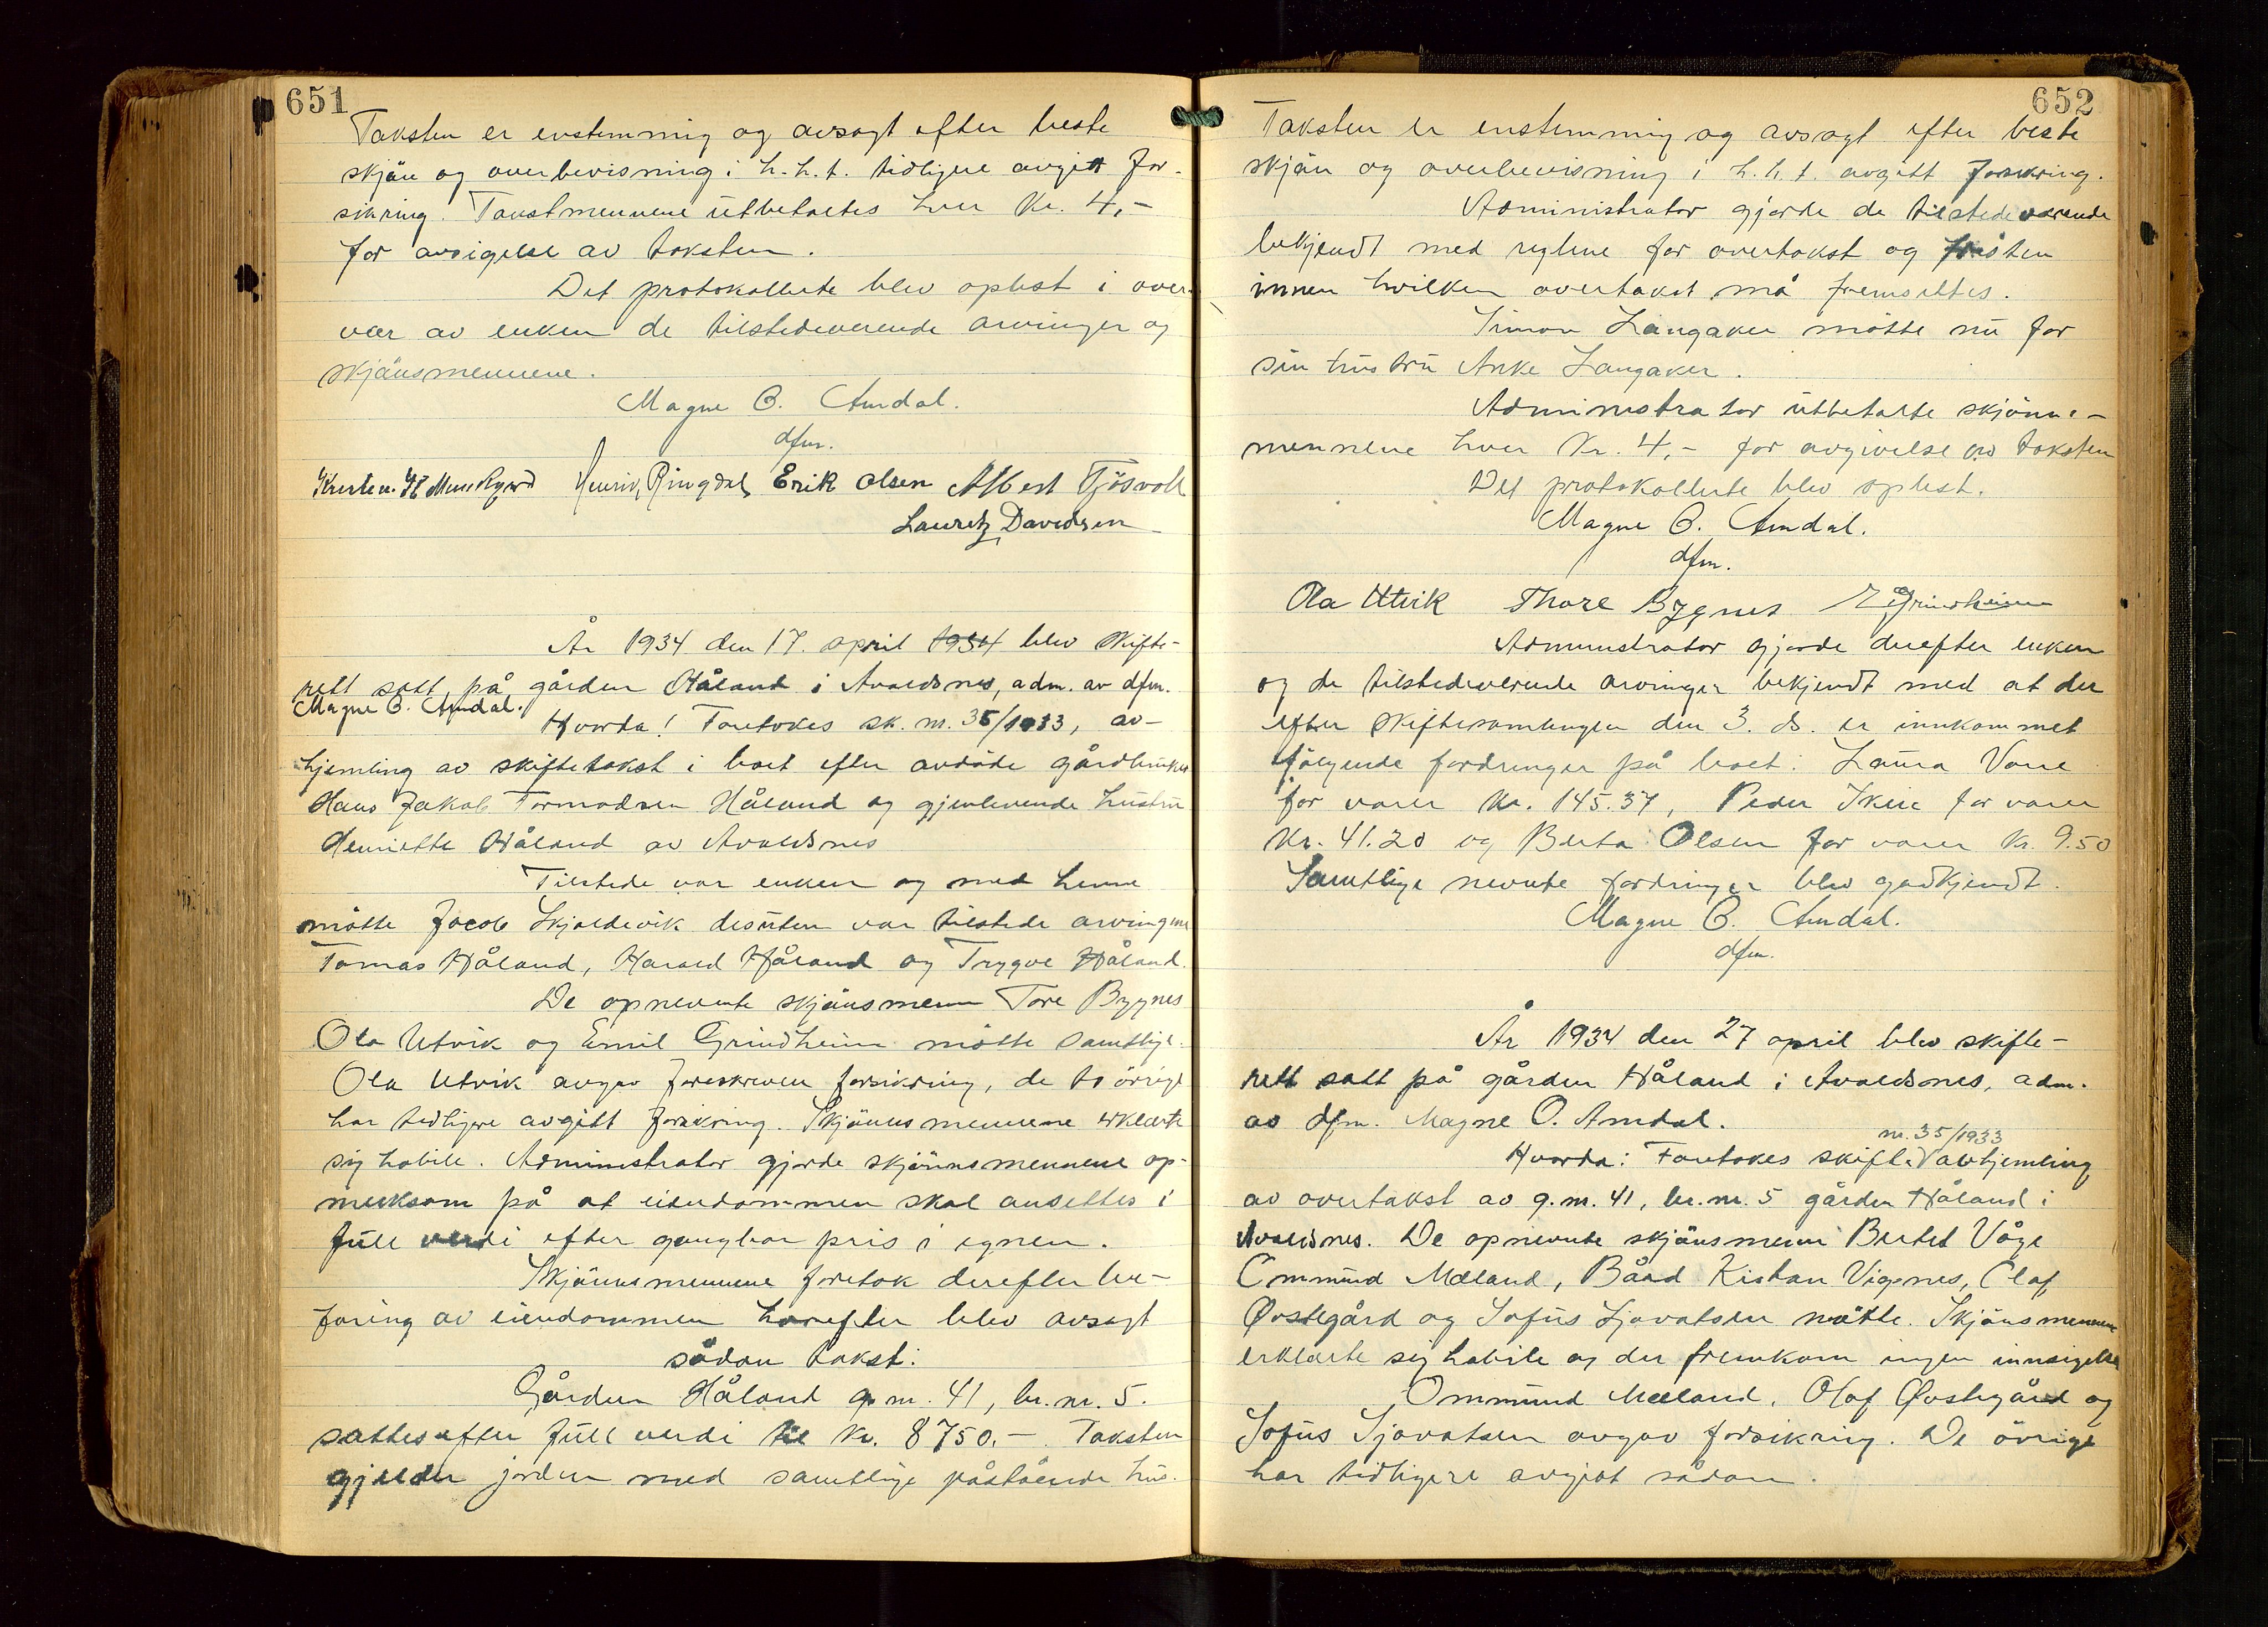 651
Taksten er enstemmig og avsagt efter beste
skjön og overbevisning i h.h.t. tidligere avgitt for-
sikring. Takstmennene utbetaltes hver Kr. 4,-
for avsigelse av taksten.
Det protokollerte blev oplest i over-
vær av enken de tilstedeverende arvinger og
skjönsmennene.
Magne O. Amdal.
dfm.
Henrik Ringdal Erik Olsen Albert Tjösvoll
Lauritz Davidsen
År 1934 den 17. april 1934 blev skifte-
rett satt på gården Håland i Avaldsnes, adm. av dfm.
Magne O. Amdal.
Hvorda! Foretokes sk. nr. 35/1933, av-
hjemling av skiftetakst i boet efter avdöde gårdbruker
Hans Jakob Tormodsen Håland og gjenlevende hustru
Henriette Håland av Avaldsnes
Tilstede var enken og med henne
mötte Jacob Skjoldevik desuten var tilstede arvingene
Tomas Håland, Harald Håland og Trygve Håland.
De opnevnte skjönsmenn Tore Bygnes
Ola Utvik og Emil Grindheim mötte samtlige.
Ola Utvik avgav foreskreven forsikring, de to övrige
har tidligere avgitt forsikring. Skjönnsmennene erklærte
sig habile. Administrator gjorde skjönnsmennene op-
merksom på at eiendommen skal ansettes i
full verdi efter gangbar pris i egnen.
Skjönnsmennene foretok derefter be-
faring av eiendommen hvorefter blev avsagt
sådan takst:
Gården Håland g.nr. 41, br.nr. 5.
sattes efter full verdi til Kr. 8750.- Taksten
gjelder jorden med samtlige påstående hus.
652
Taksten er enstemmig og avsagt efter beste
skjön og overbevisning i h.h.t. avgitt forsikring.
Administrator gjorde de tilstedeværende
bekjendt med reglene for overtakst og fristen
innen hvilken overtakst må fremsettes.
Simon Langaker mötte nu for
sin hustru Anke Langaker.
Administrator utbetalte skjönns-
mennene hver Kr. 4,- for avgivelse av taksten
Det protokollerte blev oplest.
Magne O. Amdal.
dfm.
Ola Utvik Thore Bygnes E Grindheim
Administrator gjorde derefter enken
og de tilstedeverende arvinger bekjendt med at der
efter skiftesamlingen den 3. ds. er innkommet
fölgende fordringer på boet: Laura Vorre
for varer Kr. 145.37, Peder Skeie for varer
Kr. 41.20 og Berta Olsen for varer Kr. 9.50
Samtlige nevnte fordringer blev godkjendt.
Magne O. Amdal.
dfm.
År 1934 den 27 april blev skifte-
rett satt på gården Håland i Avaldsnes, adm.
av dfm. Magne O. Amdal.
nr. 35/1933
Hvorda: Foretokes skifte avhjemling
av overtakst av g.nr. 41, br.nr. 5 gården Håland i
Avaldsnes. De opnevnte skjönsmenn Bertel Våge
Ommund Mæland, Bård Kristian Vignes, Olaf
Østegård og Sofus Sjovatsen mötte. Skjönsmennene
erklærte sig habile og der fremkom ingen innsigelse
Ommund Mæland, Olaf Østegård og
Sofus Sjovatsen avgav forsikring. De övrige
har tidligere avgitt sådan.